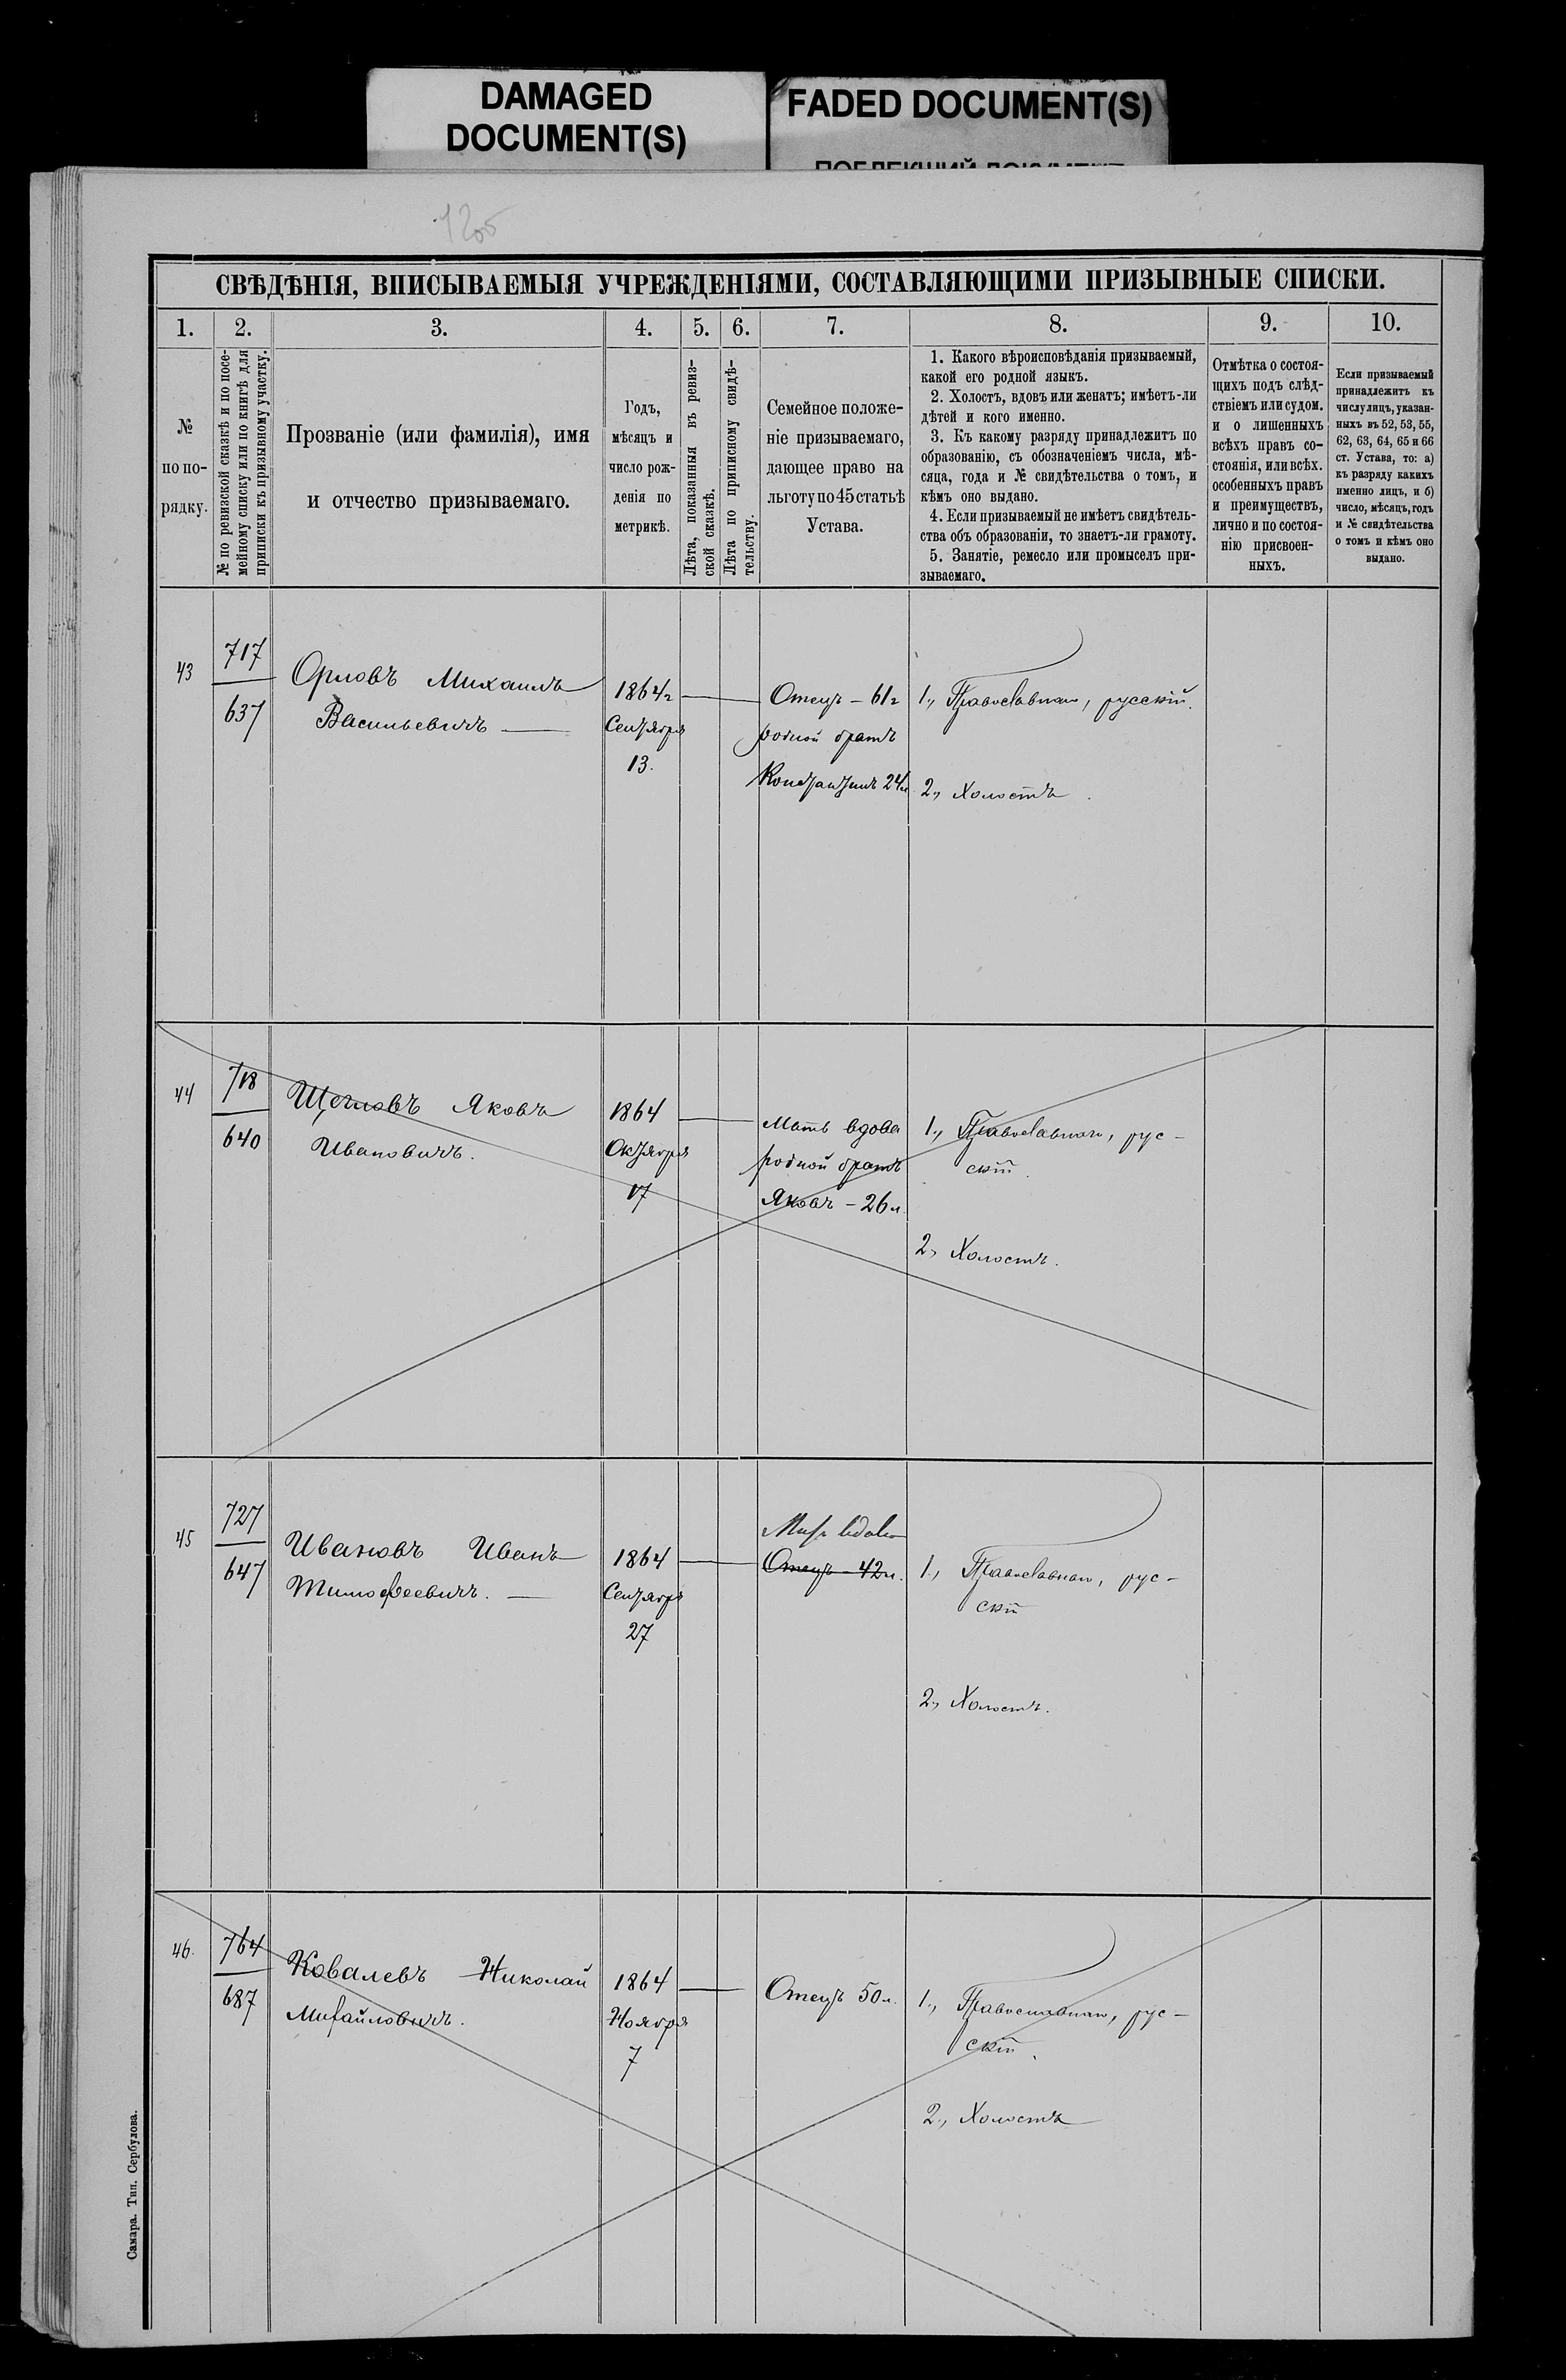 DAMAGED
DOCUMENT(S)
FADED DOCUMENT(S)
ПОБЛЕКШИЙ ДОКУМЕНТ
СВѢДѢНІЯ, ВПИСЫВАЕМЫЯ УЧРЕЖДЕНІЯМИ, СОСТАВЛЯЮЩИМИ ПРИЗЫВНЫЕ СПИСКИ.
1.
2.
3.
4.
5.
6.
7.
8.
9.
10.
№
по по-
рядку.
№ по ревизской сказкѣ и по посе-
мейному списку или по книгѣ для
приписки къ призывному участку.
Прозваніе (или фамилія), имя
и отчество призываемаго.
Годъ,
мѣсяцъ и
число рож-
денія по
метрикѣ.
Лѣта, показанныя въ ревиз-
ской сказкѣ.
Лѣта по приписному свидѣ-
тельству.
Семейное положе-
ніе призываемаго,
дающее право на
льготу по 45 статьѣ
Устава.
1. Какого вѣроисповѣданія призываемый,
какой его родной языкъ.
2. Холостъ, вдовъ или женатъ; имѣетъ-ли
дѣтей и кого именно.
3. Къ какому разряду принадлежитъ по
образованію, съ обозначеніемъ числа, мѣ-
сяца, года и № свидѣтельства о томъ, и
кѣмъ оно выдано.
4. Если призываемый не имѣетъ свидѣтель-
ства объ образованіи, то знаетъ-ли грамоту.
5. Занятіе, ремесло или промыселъ при-
зываемаго.
Отмѣтка о состоя-
щихъ подъ слѣд-
ствіемъ или судом.
и о лишенныхъ
всѣхъ правъ со-
стоянія, или всѣх.
особенныхъ правъ
и преимуществъ,
лично и по состоя-
нію присвоен-
ныхъ.
Если призываемый
принадлежитъ къ
числу лицъ, указан-
ныхъ въ 52, 53, 55,
62, 63, 64, 65 и 66
ст. Устава, то: а)
къ разряду какихъ
именно лицъ, и б)
число, мѣсяцъ, годъ
и № свидѣтельства
о томъ и кѣмъ оно
выдано.
43
717
637
Орловъ Михаилъ
Васильевичъ
1864г
Сентября
13.
Отецъ – 61г
родной братъ
Константинъ 24л
1., Православнаго, русскій.
2., Холостъ
44
718
640
Щегловъ Яковъ
Ивановичъ.
1864
Октября
17
Мать вдова
родной братъ
Яковъ – 26л.
1., Православнаго, рус-
скій.
2., Холостъ.
45
727
647
Ивановъ Иванъ
Тимофеевичъ.
1864
Сентября
27
Мать вдова
Отецъ – 42л.
1., Православнаго, рус-
скій
2., Холостъ.
46.
764
687
Ковалевъ Николай
Михайловичъ.
1864
Ноября
7
Отецъ 50л.
1., Православнаго, рус-
скій.
2., Холостъ
Самара. Тип. Сербулова.